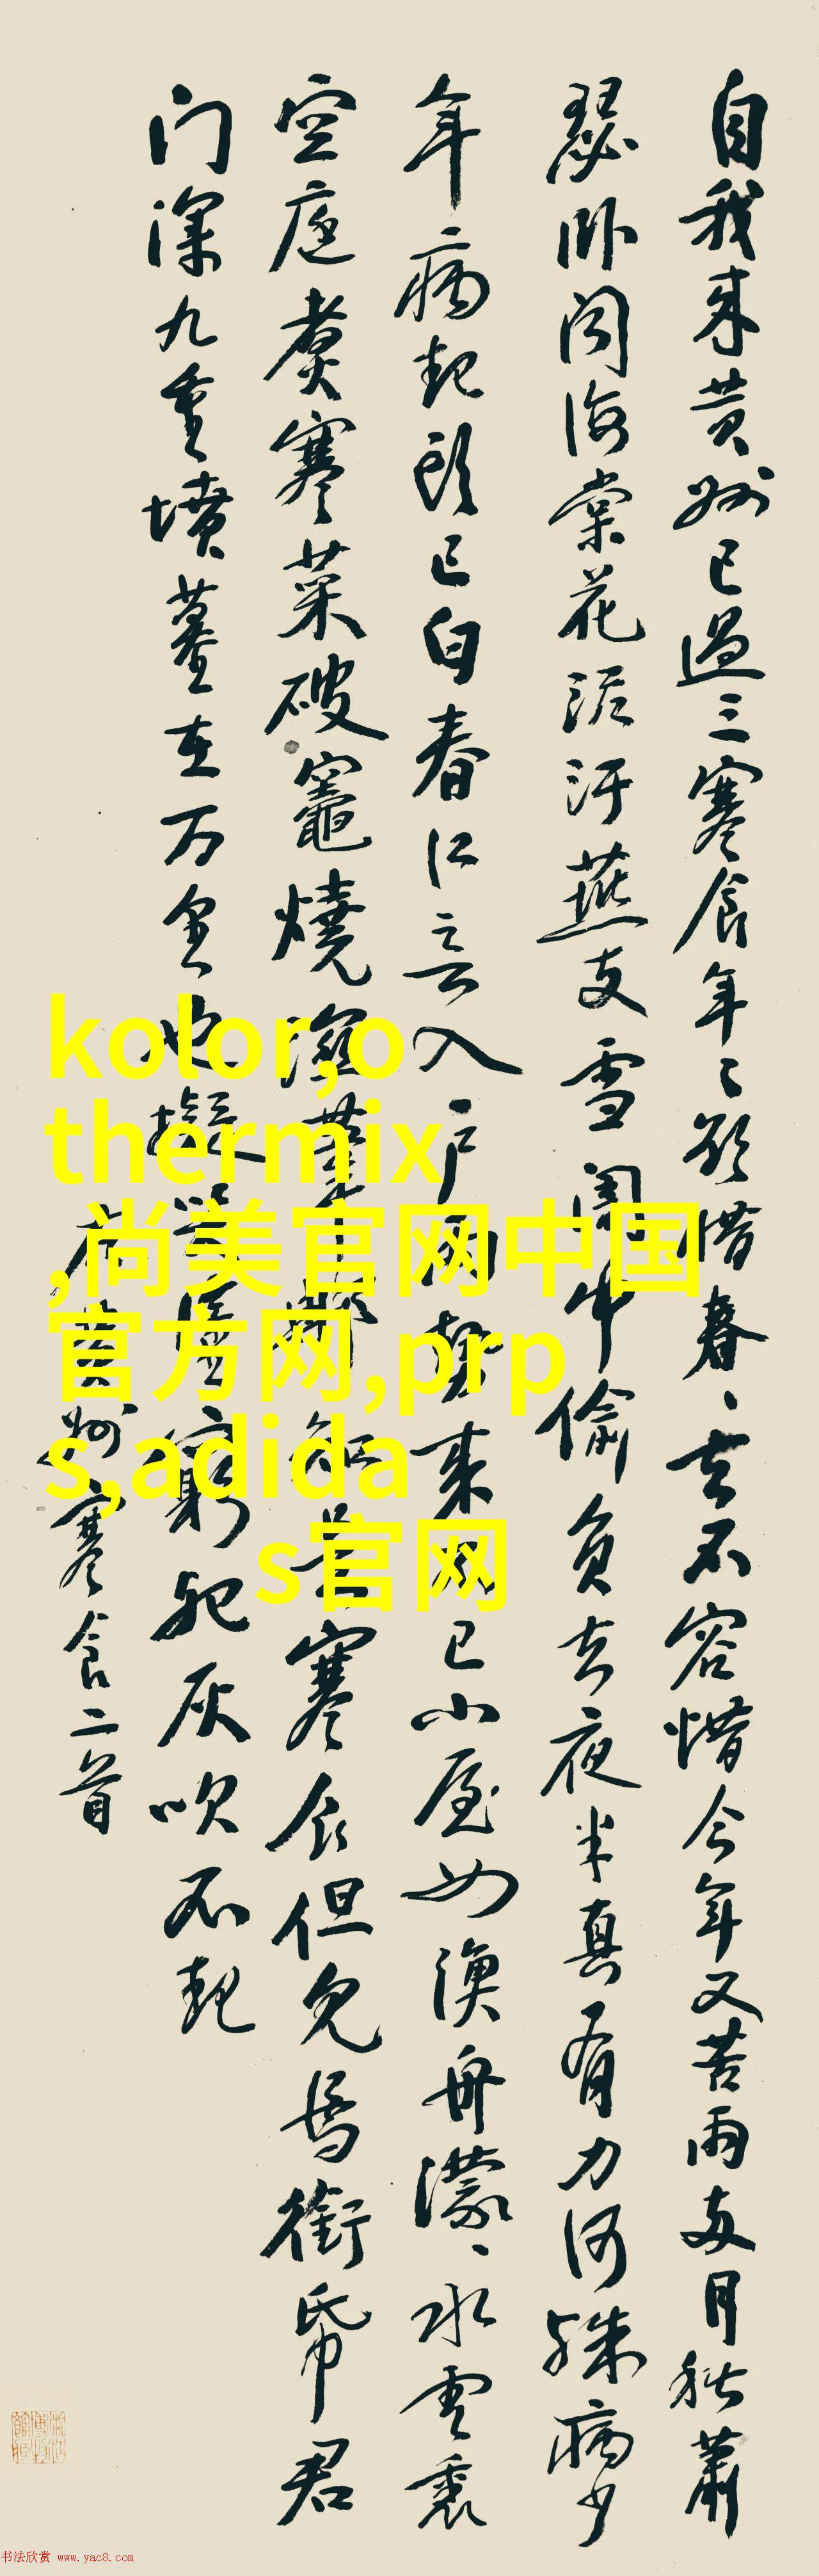 自我来黄州已過三寒食年〻欲惜春〻去不容惜今年又苦雨两月秋蕭
瑟卧闻海棠花泥汙燕支雪闇中偷負去夜半真有力何殊病少
年病起頭已白春江欲入户雨勢来不已小屋如漁舟濛〻水雲裏
空庖煑寒菜破竈燒濕葦那知是寒食但見烏銜帋君
门深九重墳墓在万里也擬哭塗窮死灰吹不起
右黄州寒食二首
kolor,o
thermix
,尚美官网中国
官方网,prp
s,adida
s官网
书法欣赏 www.yac8.com